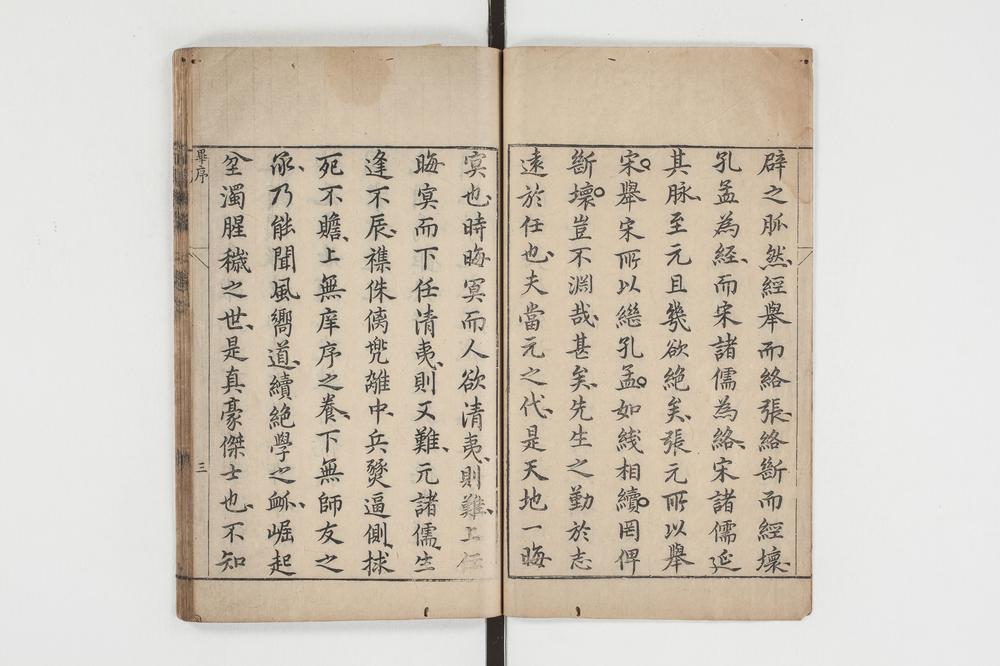 辟之脈然經舉而絡張絡斷而經壞
孔孟為經而宋諸儒為絡宋諸儒延
其脉至元且幾欲絶矣張元所以舉
宋舉宋所以繼孔孟如綫相續罔俾
斷壞豈不淵哉甚矣先生之勤於志
遠於任也夫當元之代是天地一晦
㝠也時晦冥而人欲清夷則難上任
晦冥而下任清夷則又難元諸儒生
逢不辰襍侏儷兠離中兵燹逼側捄
死不贍上無庠序之養下無師友之
承乃能聞風嚮道續絶學之䘑崛起
坌濁腥穢之世是真豪傑士也不知
畢序
三